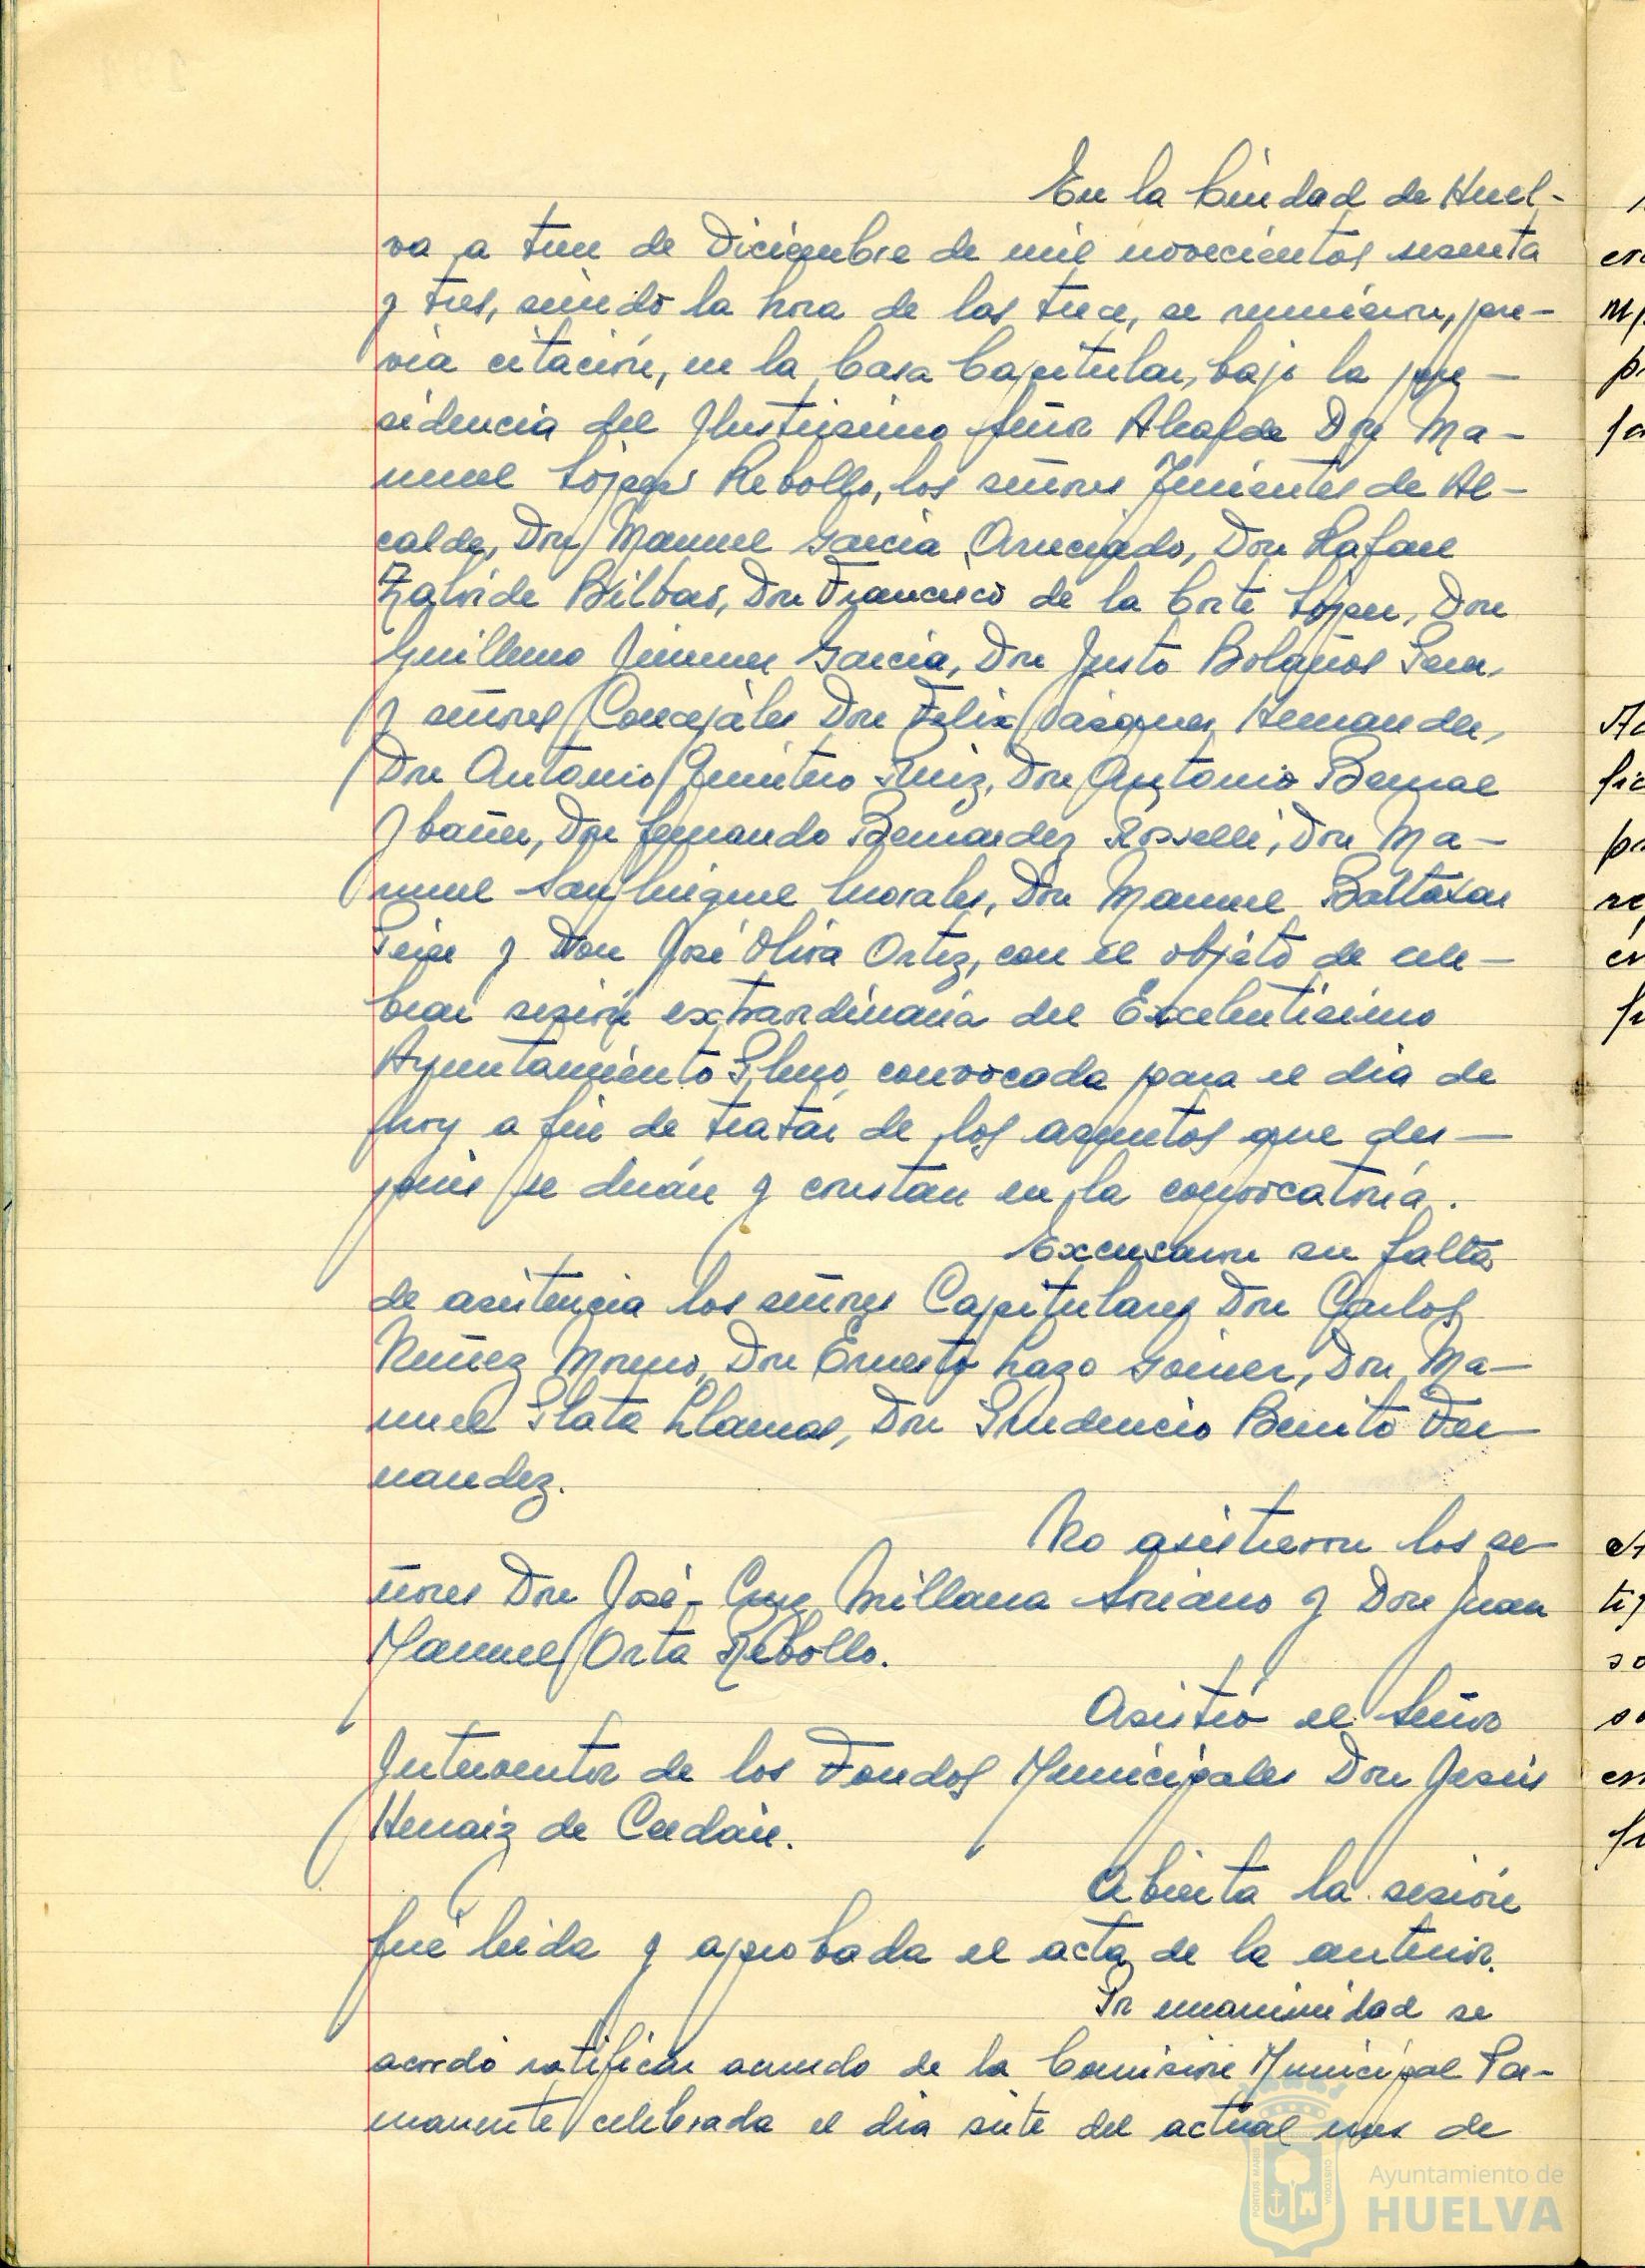 En la Ciudad de Huel-
va a trece de Diciembre de mil novecientos sesenta
y tres, siendo la hora de las trece, se reunieron, pre-
via citación, en la Casa Capitular, bajo la pre-
sidencia del Ilustrisimo Señor Alcalde Don Ma-
nuel López Rebollo, los señores Tenientes de Al-
calde, Don Manuel Garcia Arreciado, Don Rafael
Zalvide Bilbao, Don Francisco de la Corte López, Don
Guillermo Jimenez Garcia, Don Justo Bolaños Pera,
y señores Concejales Don Felix Vazquez Hernandez,
Don Antonio Quintero Ruiz, Don Antonio Bernal
Ybañez, Don fernando Bernardez Rosselli, Don Ma-
nuel San Miguel Morales, Don Manuel Baltasar
y Don José Oliva Ortiz, con el objeto de cele-
brar sesión extraordinaria del Excelentisimo
Ayuntamiento Pleno, convocada para el dia de
hoy a fin de tratar de los asuntos que des-
pues se dirán y constan en la convocatoria.
Excusaron su falta
de asistencia los señores Capitulares Don Carlos
Nuñez Moreno, Don Ernesto Lazo Don Ma-
nuel Plata Llamas, Don Prudencio Benito Fer-
nandez.
No asistieron los se-
ñores Don José-Cruz Millana Soriano y Don Juan
Manuel Orta Rebollo.
Asistió el Señor
Interventor de los Fondos Municipales Don Jesus
Henaiz de Cerdán.
Abierta la sesión
fué leida y aprobada el acta de la anterior.
Por unanimidad se
acordó ratificar acuerdo de la Comisión Municipal Per-
manente celebrada el dia siete del actual mes de
PORTUS MARIS
CUSTODIA
Ayuntamiento de
HUELVA